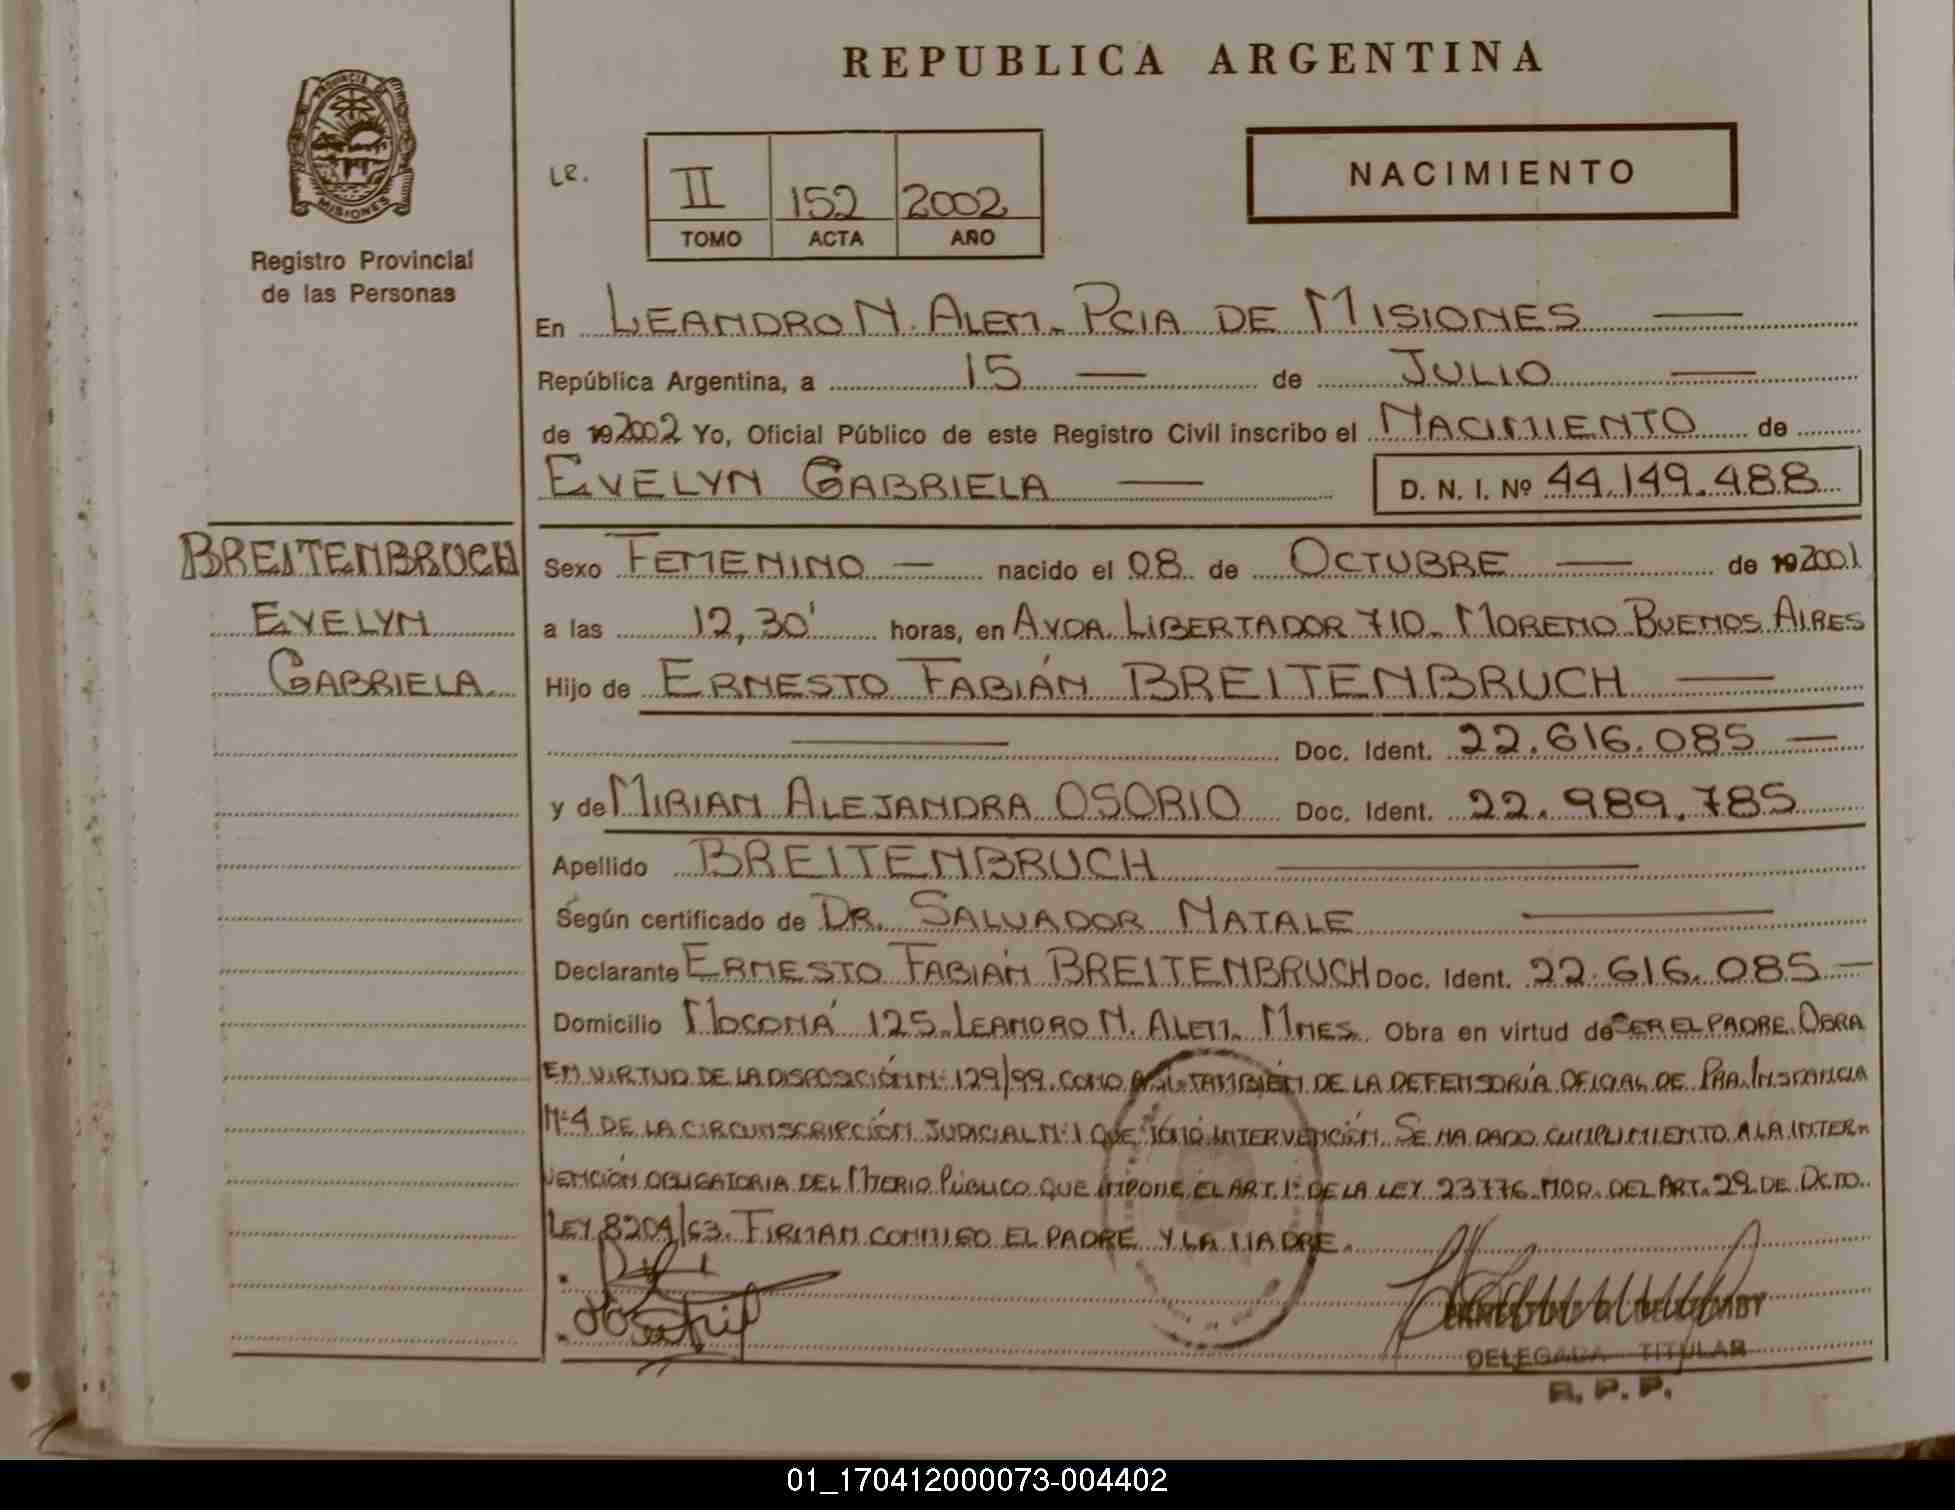 REPUBLICA ARGENTINA
PROVINCIA DE
MISIONES
Registro Provincial
de las Personas
LR.
II 152 2002
TOMO ACTA AÑO
NACIMIENTO
En LEANDRO N. ALEM. PCIA DE MISIONES
República Argentina, a 15 de JULIO
de 192002 Yo, Oficial Público de este Registro Civil inscribo el NACIMIENTO de
EVELYN GABRIELA D. N. I. Nº 44.149.488
BREITENBRUCH
EVELYN
GABRIELA
Sexo FEMENINO nacido el 08 de OCTUBRE de 192001
a las 12,30' horas, en AVDA. LIBERTADOR 710. MORENO BUENOS AIRES
Hijo de ERNESTO FABIÁN BREITENBRUCH
Doc. Ident. 22.616.085
y de MIRIAN ALEJANDRA OSORIO Doc. Ident. 22.989.785
Apellido BREITENBRUCH
Según certificado de DR. SALVADOR NATALE
Declarante ERNESTO FABIÁN BREITENBRUCH Doc. Ident. 22.616.085
Domicilio MOCONÁ 125. LEANDRO N. ALEM. MNES. Obra en virtud de SER EL PADRE. OBRA
EN VIRTUD DE LA DISPOSICIÓN Nº 129/99. COMO ASÍ TAMBIÉN DE LA DEFENSORÍA OFICIAL DE PRA. INSTANCIA
Nº 4 DE LA CIRCUNSCRIPCIÓN JUDICIAL Nº 1 QUE TOMÓ INTERVENCIÓN. SE HA DADO CUMPLIMIENTO A LA INTER-
VENCIÓN OBLIGATORIA DEL MTERIO PÚBLICO QUE IMPONE EL ART. 1º DE LA LEY 23776. MOD. DEL ART. 29 DE DCTO.
LEY 8204/63. FIRMAN CONMIGO EL PADRE Y LA MADRE.
DELEGADA TITULAR
R. P. P.
01_170412000073-004402